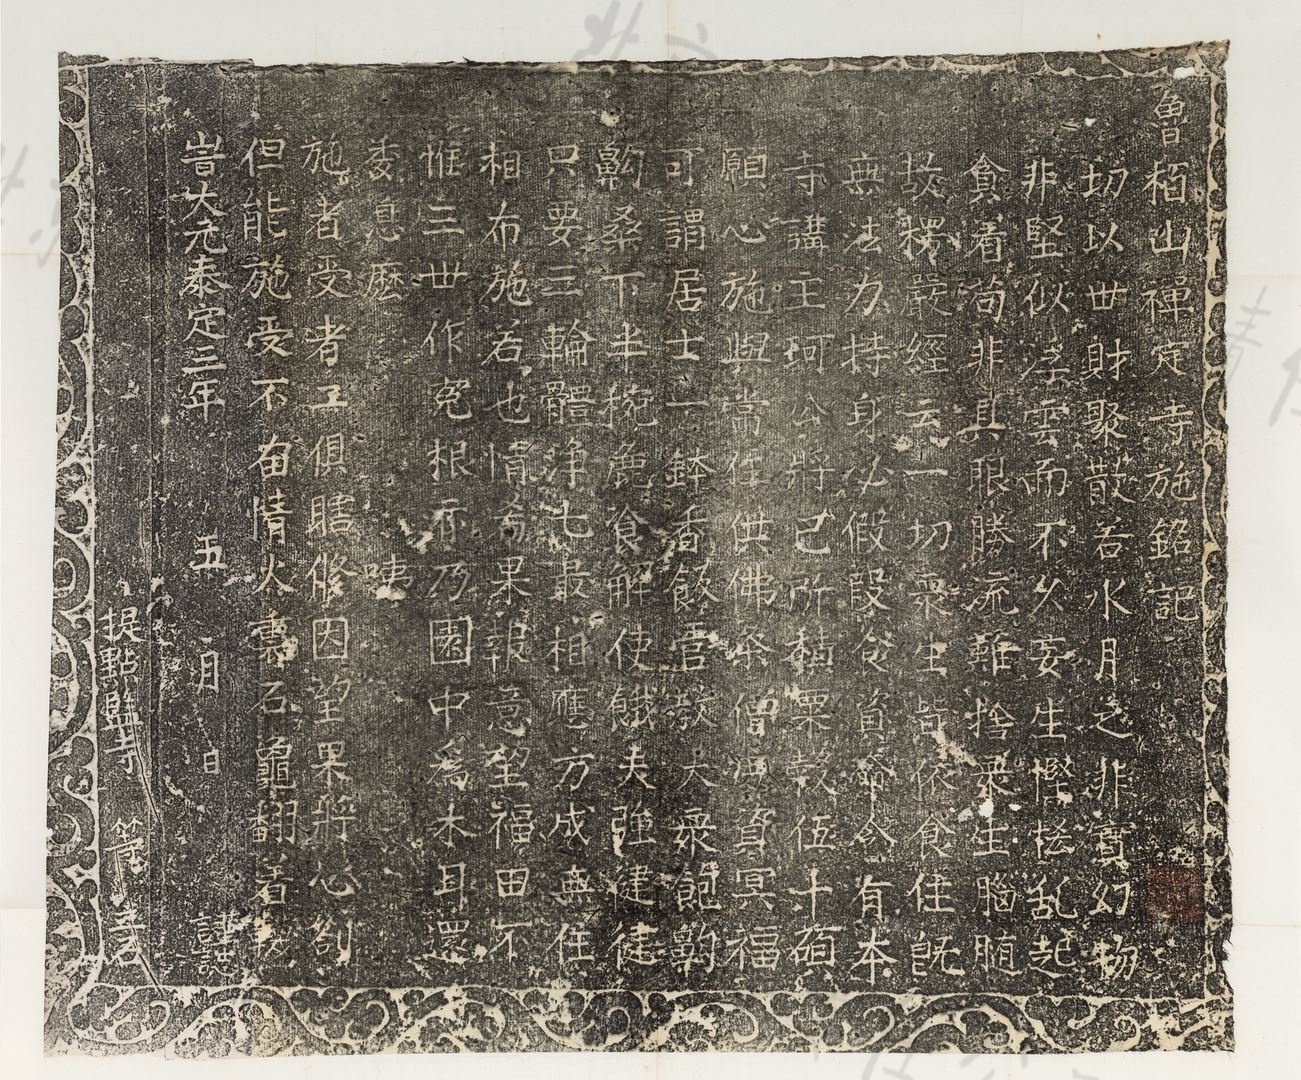 魯栢山禪定寺施銘記
切以世財聚散若水月之非實幻物
非堅似浮雲而不久妄生慳悋乱起
貪着苟非具眼勝流難捨衆生腦随
故楞嚴經云一切衆生皆依食住既
無法力持身必假段食資命今有本
寺講主珂公將己所積粟穀伍十碩
願心施與常住供佛余僧温資冥福
可謂居士一鉢香飯信教大衆飽齁
齁桑下半椀麁食解使餓夫強健徒
只要三輪體淨七最相應方成無住
相布施若也情希果報意望福田不
惟三世作寃根亦乃園中爲木耳還
委悉麽 咦
施者受者工俱瞎修因望果將心刱
但能施受不留情火裏石龜翻着
旹大元泰定三年 五 月 日 謹誌
提點監寺